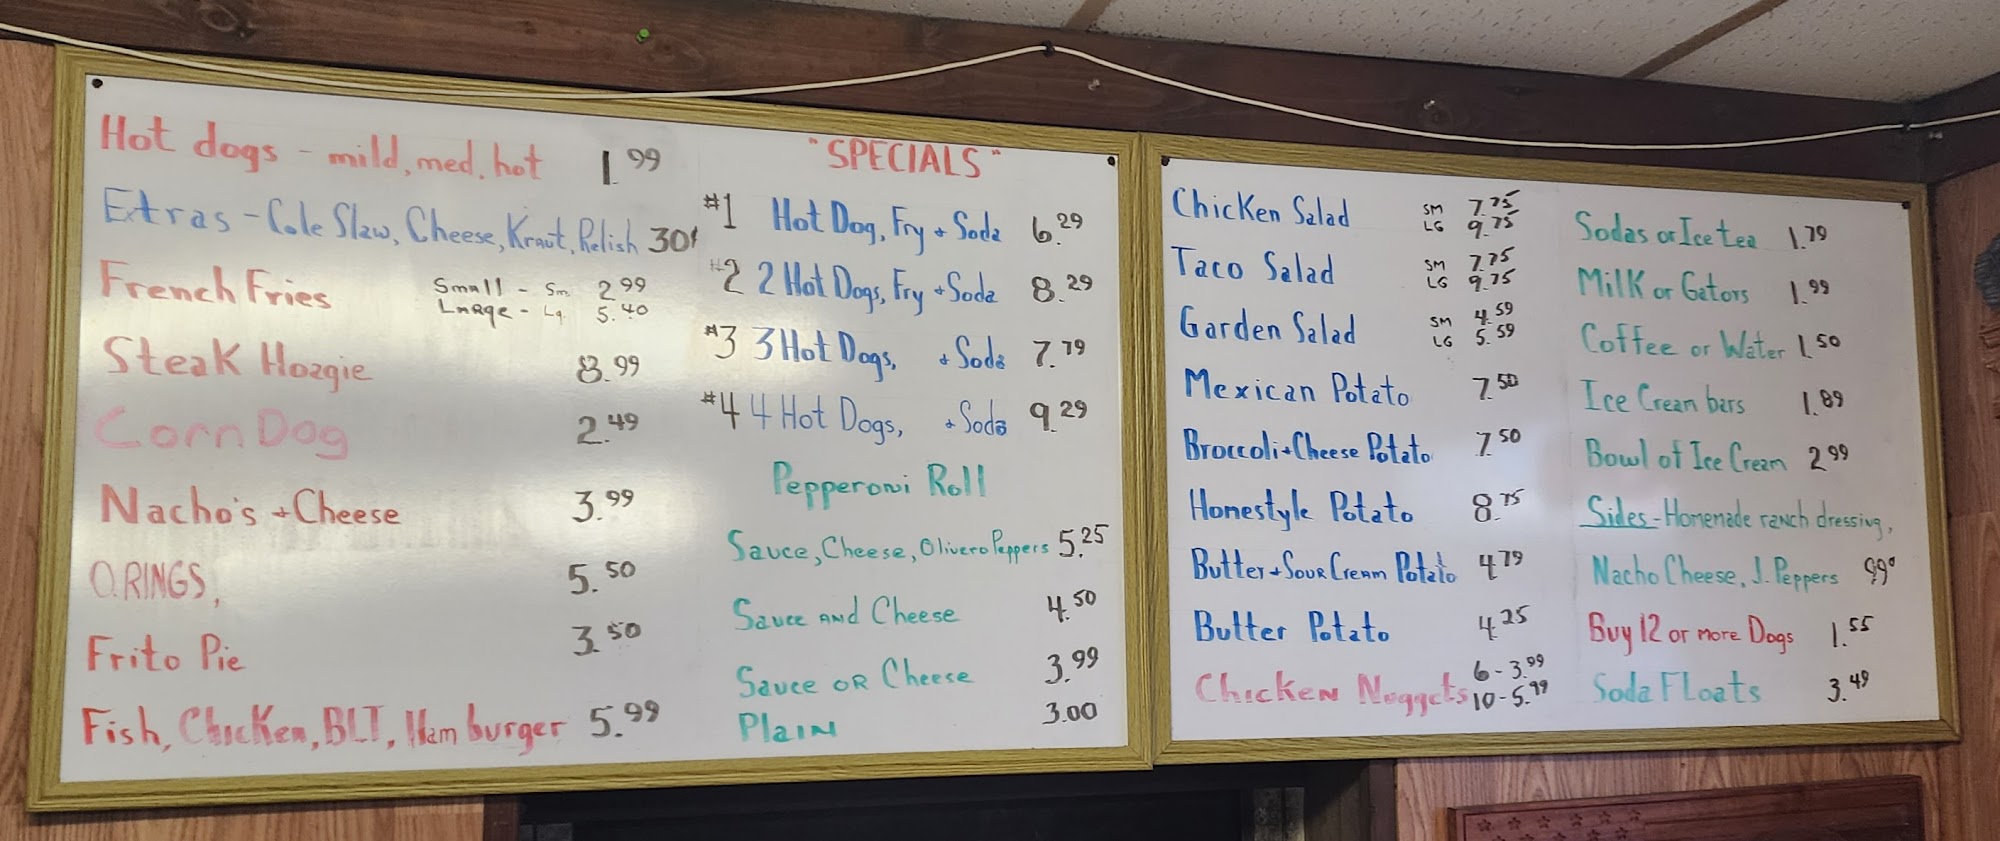 Hot dogs - mild, med, hot 1.99
Extras - Cole Slaw, Cheese, Kraut, Relish 30¢
French Fries Small - Sm 2.99
Large - Lg. 5.40
Steak Hoagie 8.99
Corn Dog 2.49
Nacho's + Cheese 3.99
O.RINGS, 5.50
Frito Pie 3.50
Fish, Chicken, BLT, Hamburger 5.99
"SPECIALS"
#1 Hot Dog, Fry + Soda 6.29
#2 2 Hot Dogs, Fry + Soda 8.29
#3 3 Hot Dogs, + Soda 7.79
#4 4 Hot Dogs, + Soda 9.29
Pepperoni Roll
Sauce, Cheese, Olivero Peppers 5.25
Sauce AND Cheese 4.50
Sauce OR Cheese 3.99
Plain 3.00
Chicken Salad SM 7.75
LG 9.75
Taco Salad SM 7.75
LG 9.75
Garden Salad SM 4.59
LG 5.59
Mexican Potato 7.50
Broccoli + Cheese Potato 7.50
Homestyle Potato 8.75
Butter + Sour Cream Potato 4.79
Butter Potato 4.25
Chicken Nuggets 6 - 3.99
10 - 5.99
Sodas or Ice tea 1.79
Milk or Gators 1.99
Coffee or Water 1.50
Ice Cream bars 1.89
Bowl of Ice Cream 2.99
Sides - Homemade ranch dressing,
Nacho Cheese, J. Peppers 99¢
Buy 12 or more Dogs 1.55
Soda Floats 3.49